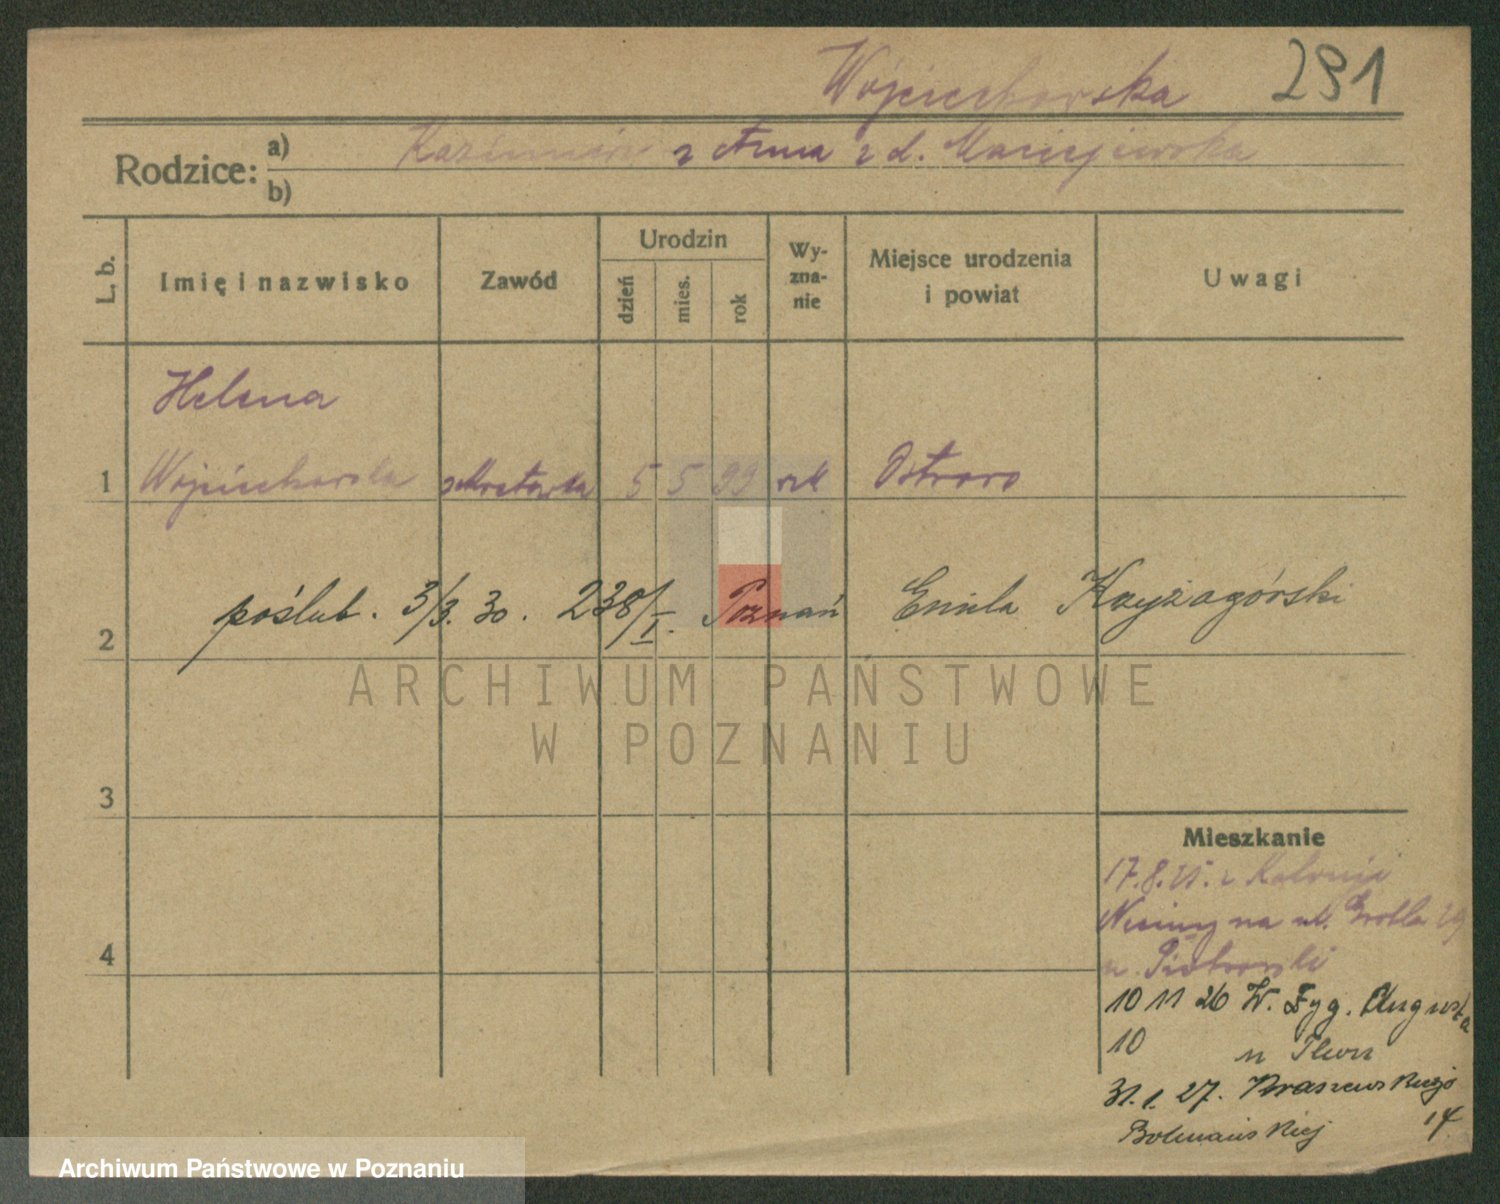 Wojciechowska 291
Rodzice: a) Kazimierz z Anna z d. Maciejewska
b)
L. b. Imię i nazwisko Zawód Urodzin dzień mies. rok Wyznanie Miejsce urodzenia i powiat Uwagi
Helena
1 Wojciechowska sekretarka 5 5 99 rk Ostroro
2 poślub. 3/3. 30. 238/I. Poznań Emila Krzyżagórski
ARCHIWUM PAŃSTWOWE
W POZNANIU
3
Mieszkanie
17.8.25. z Kolonji
na ul. Grobla 29
u. Piotrowski
4
10 11 26 W. Zyg. Augusta
10 u
31.1.27. Kraszewskiego
14
Archiwum Państwowe w Poznaniu